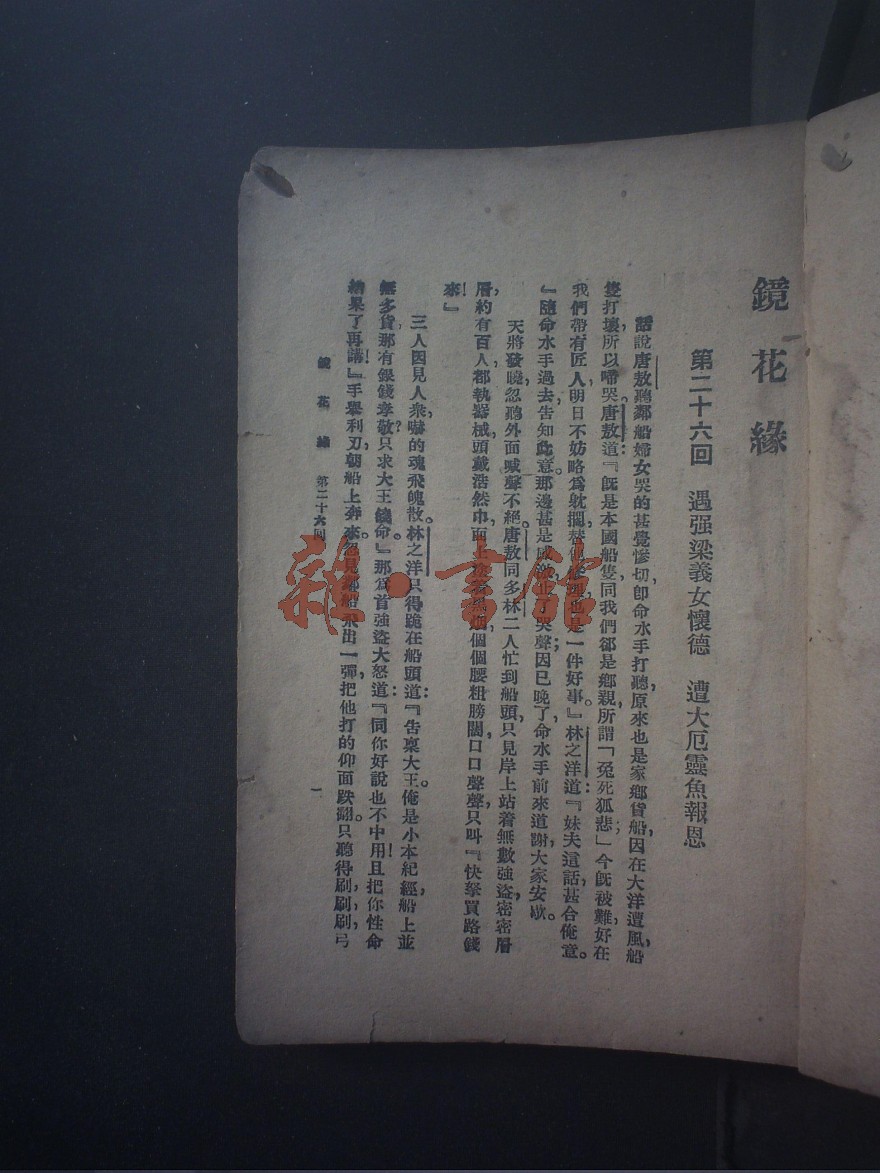 鏡花緣
第二十六回　遇强梁義女懷德　遭大厄靈魚報恩
話說唐敖聽鄰船婦女哭的甚覺慘切，卽命水手打聽，原來也是家鄉貨船，因在大洋遭風，船
隻打壞，所以啼哭。唐敖道：『旣是本國船隻，同我們卻是鄉親，所謂「兔死狐悲」；今旣被難，好在
我們帶有匠人，明日不妨略爲躭擱，替他修理，也是一件好事。』林之洋道：『妹夫這話，甚合俺意。
』隨命水手過去，告知此意。那邊甚是感激，止了哭聲；因已晚了，命水手前來道謝，大家安歇。
天將發曉，忽聽外面喊聲不絕。唐敖同多林二人忙到船頭，只見岸上站着無數強盜，密密層
層，約有百人，都執器械，頭戴浩然巾，面上個個腰粗膀闊，口口聲聲，只叫『快拏買路錢
來！』
三人因見人衆，嚇的魂飛魄散。林之洋只得跪在船頭道：『告稟大王。俺是小本紀經，船上並
無多貨，那有銀錢孝敬？只求大王饒命。』那爲首強盜大怒道：『同你好說也不中用！且把你性命
結果了再講！』手舉利刃，朝船上奔來。忽見鄰船飛出一彈，把他打的仰面跌翻。只聽得刷，刷，刷，弓
鏡花緣　第二十六回　一
雜·書館